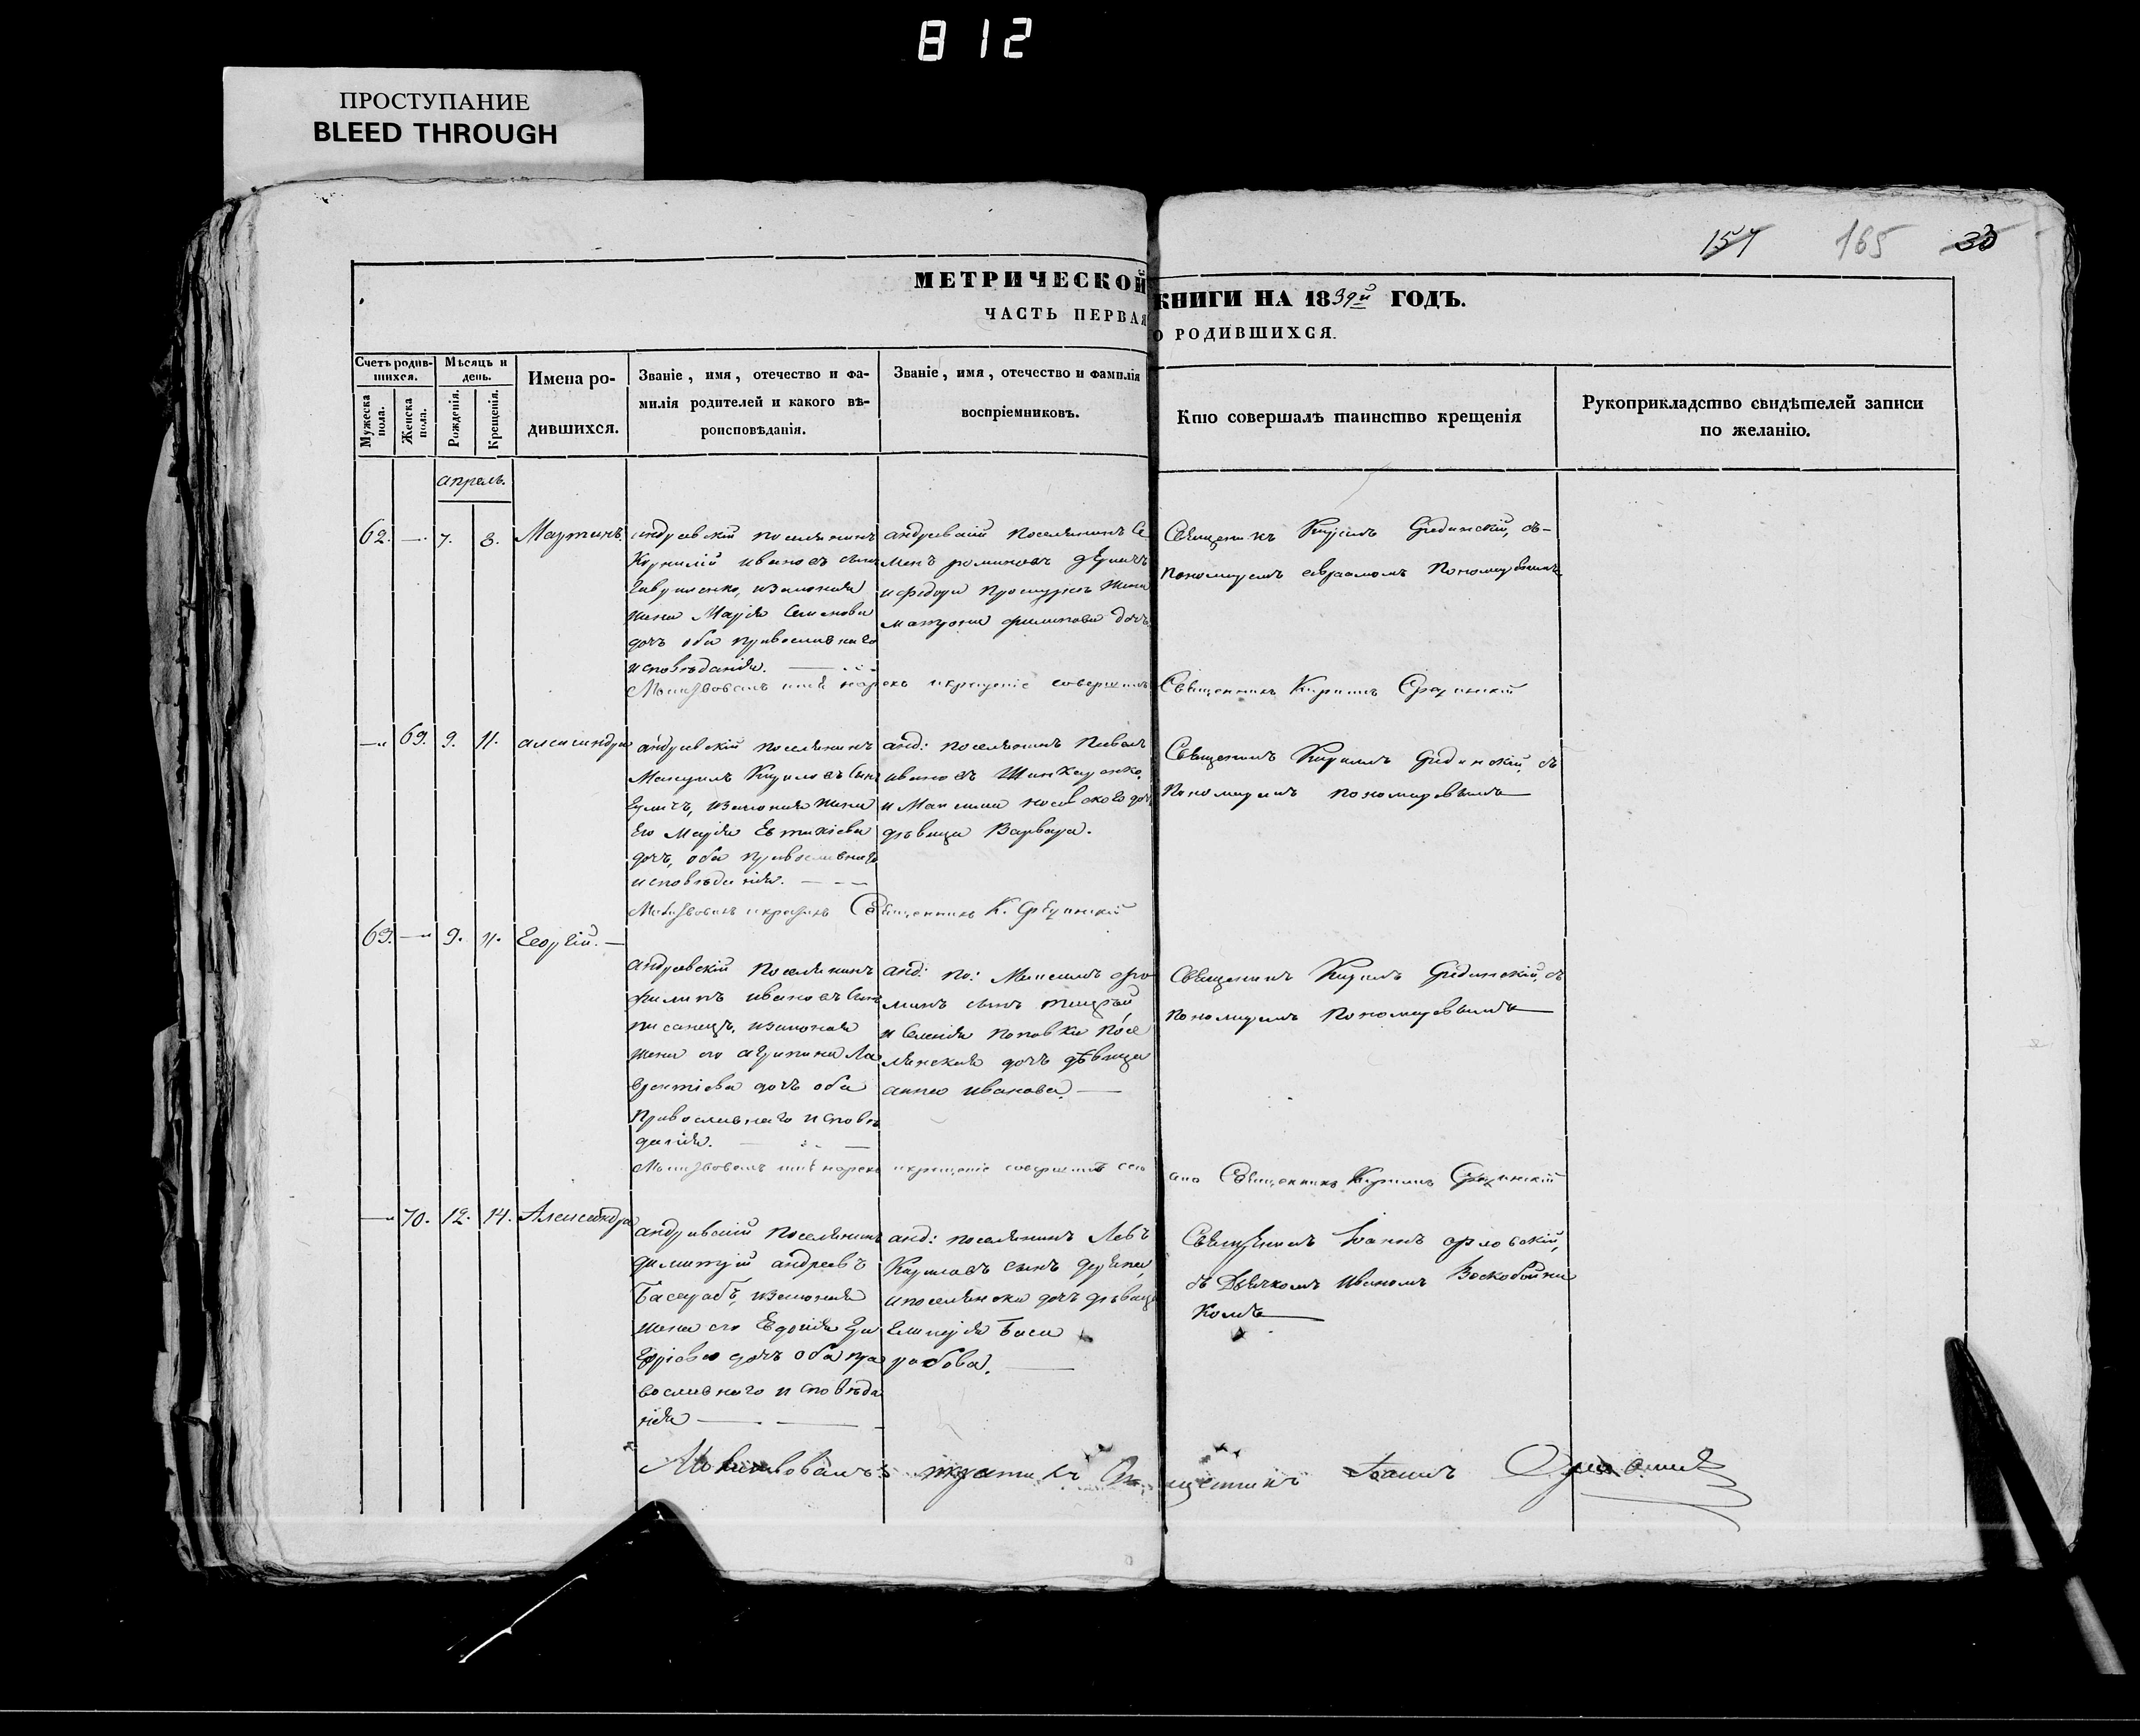 812
ПРОСТУПАНИЕ
BLEED THROUGH
157 165 30
МЕТРИЧЕСКОЙ КНИГИ НА 1839й ГОДЪ.
ЧАСТЬ ПЕРВАЯ О РОДИВШИХСЯ.
Счетъ родившихся.
Мужеска пола.
Женска пола.
Мѣсяцъ и день.
Рожденія.
Крещенія.
Имена родившихся.
Званіе, имя, отечество и фамилія родителей и какого вѣроисповѣданія.
Званіе, имя, отечество и фамилія воспріемниковъ.
Кто совершалъ таинство крещенія
Рукоприкладство свидѣтелей записи по желанію.
апрель.
62. — 7. 8. Мартинъ
андреевскій поселянинъ
Корнилій ивановъ сынъ
Гавриленко, изаконная
жена Марія Семенова
дочь оба православнаго
исповѣданія.
андреевскій поселянинъ Се
менъ романовъ
и федора жена
матрона филипова дочь
Священикъ Кирилъ Срединскій, съ
пономаремъ авраамомъ Пономаревымъ
Молитвовалъ имя нарекъ икрещеніе совершилъ Священникъ Кирилъ Срединскій
— 69. 9. 11. александра
андреевскій поселянинъ
Кириловъ сынъ
изаконная жена
его Марія Евтихіева
дочь, оба православнаго
исповѣданія.
анд: поселянинъ Павелъ
ивановъ Шинкаренко,
и Максима дочь
дѣвица Варвара.
Священикъ Кирилъ Срединскій, съ
Пономаремъ пономаревымъ
Молитвовалъ икрестилъ Священникъ К. Срединскій
63. — 9. 11. Георгій.
андреевскій поселянинъ
филипъ ивановъ сынъ
писанецъ, изаконая
жена его агрипина Ла
врентіева дочь оба
Православнаго исповѣ
данія.
анд: по: Максимъ фро
мимъ сынъ
и Селенія поповки посе
лянская дочь дѣвица
анна иванова.
Священикъ Кирилъ Срединскій, съ
пономаремъ Пономаревымъ
Молитвовалъ имя нарекъ икрещеніе совершилъ Священникъ Кирилъ Срединскій
— 70. 12. 14. Александра
андреевскій поселянинъ
димитрій андреевъ
Басарабъ, изаконная
жена его Евдокія Гри
горіева дочь оба пра
вославнаго исповѣда
нія
анд: поселянинъ Левъ
Кириловъ сынъ
ипоселянска дочь дѣвица
Гликерія Баса
рабова.
Священикъ Іоаннъ орловскій,
съ Дьячкомъ иваномъ Воскобойни
комъ
Молитвовалъ икрестилъ Священникъ Іоаннъ Орловскій